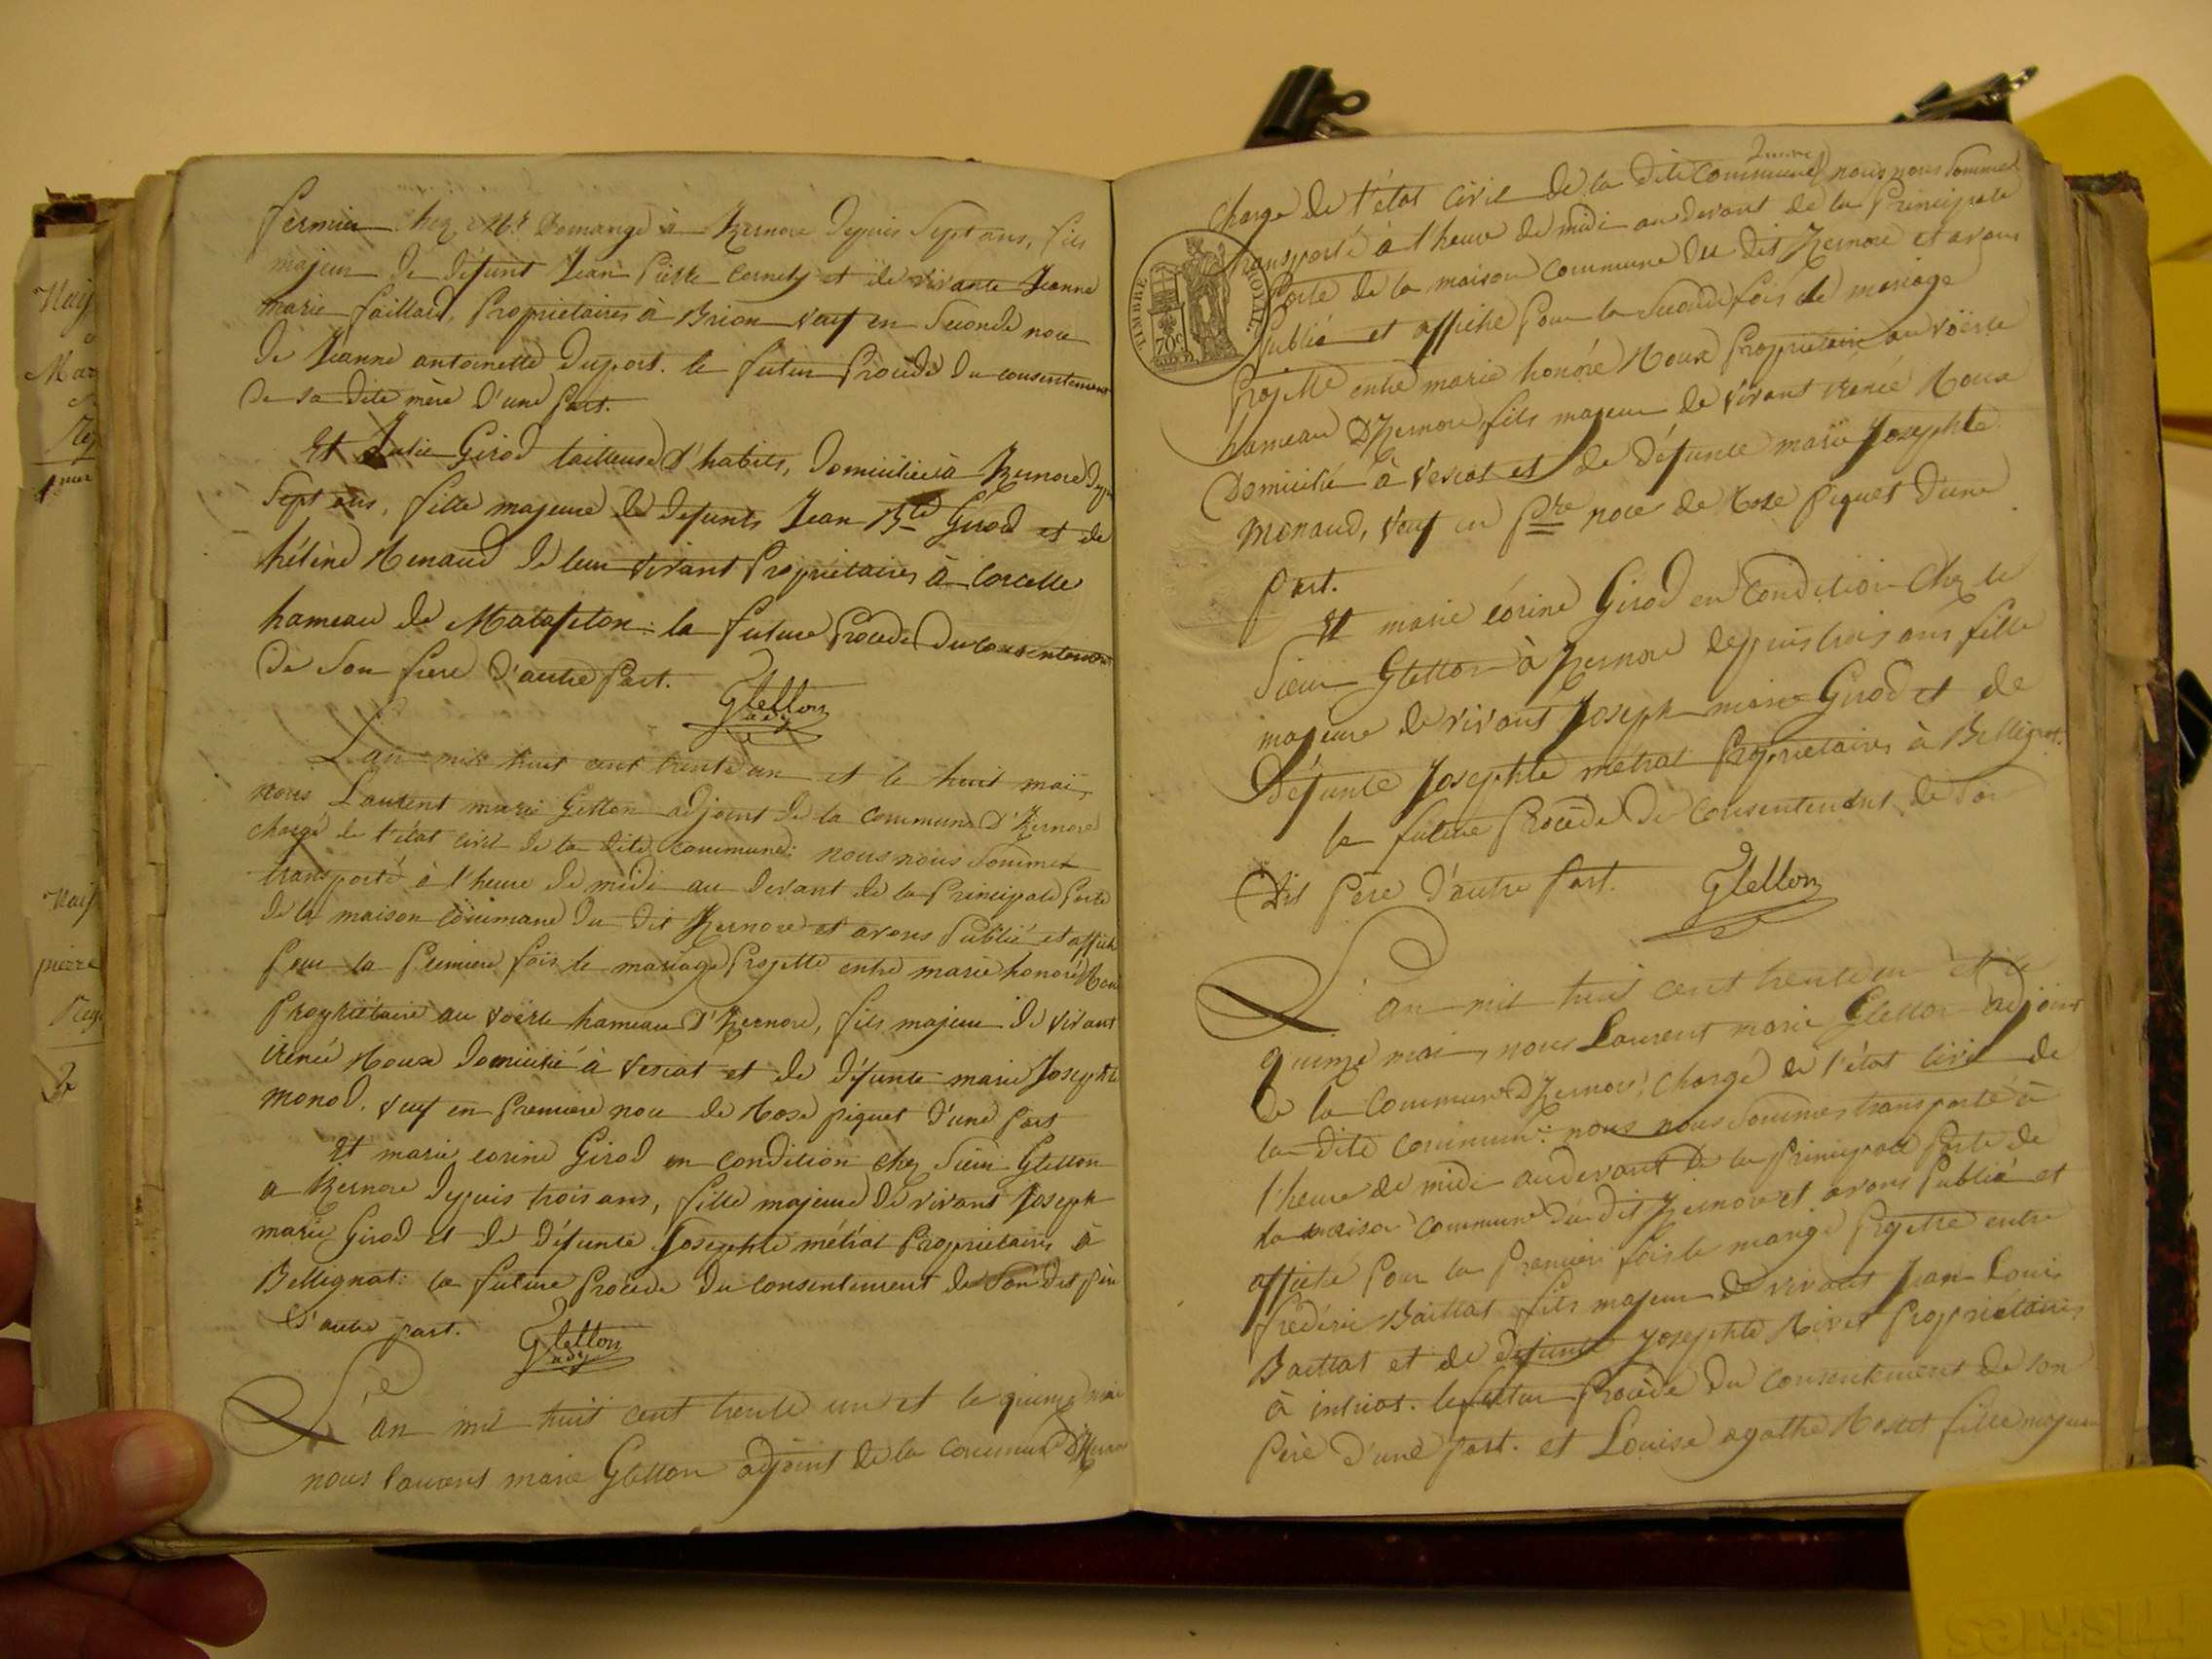 fermier chez Mr Domange à Izernore depuis sept ans, fils
majeur de défunt Jean Pierre Cornety et de vivante Jeanne
marie faillard, Propriétaires à Brion veuf en seconde noce
de Jeanne antoinette Duport. le futur Procède du consentement
de sa dite mère d'une Part.
Et Julie Girod tailleuse d'habits, domiciliée à Izernore depuis
Sept ans, fille majeure de défunts Jean Bte Girod et de
hélène Renaud de leur vivant Propriétaires à Corcelle
hameau de Matafelon: la future Procède du consentement
de son frère d'autre Part.
Gletton
adj
L'an mil huit cent trente un et le huit mai,
nous Laurent marie Gletton adjoint de la commune d'Izernore
chargé de l'état civil de la dite commune: nous nous sommes
transporté à l'heure de midi au devant de la Principale Porte
de la maison commune du dit Izernore et avons Publié et affiché
Pour la Première fois le mariage Projetté entre marie honoré Roux
Propriétaire au voërle hameau d'Izernore, fils majeur de vivant
irénée Roux domicilié à vescat et de défunte marie Josephte
monod, veuf en Première noce de Rose piquet d'une Part
Et marie corine Girod en condition chez Sieur Gletton
à Izernore depuis trois ans, fille majeure de vivant Joseph
marie Girod et de défunte Josephte métrat Propriétaires à
Bellignat: la future Procède du consentement de son dit père
d'autre part.
Gletton
adj
L'an mil huit cent trente un et le quinze mai
nous laurent marie Gletton adjoint de la commune d'Izernore
chargé de l'état civil de la dite commune nous nous sommes
transporté à l'heure de midi au devant de la Principale
Porte de la maison commune du dit Izernore et avons
Publié et affiché Pour la seconde fois le mariage
Projetté entre marie honoré Roux Propriétaire au voërle
hameau D'Izernore, fils majeur de vivant irénée Roux
Domicilié à vescat et de défunte marie Josephte
monaud, veuf en Pre noce de Rose piquet d'une
Part.
Et marie corine Girod en condition chez le
Sieur Gletton à Izernore depuis trois ans fille
majeure de vivant Joseph marie Girod et de
Défunte Josephte métrat Propriétaires à Bellignat.
la future Procède de consentement de son
Dit Père d'autre Part.
Gletton
L'an mil huit cent trente un et le
quinze mai, nous Laurent marie Gletton adjoint
de la commune d'Izernore, chargé de l'état civil de
la dite commune: nous nous sommes transporté à
l'heure de midi au devant de la Principale Porte de
la maison commune du dit Izernore et avons Publié et
affiché Pour la Première fois le mariage Projetté entre
frédéric Baillat fils majeur de vivant Jean Louis
Baillat et de défunte Josephte Rivet Propriétaires
à intriat. le futur Procède du consentement de son
Père d'une Part. et Louise agathe fille majeure
TIMBRE ROYAL
70c